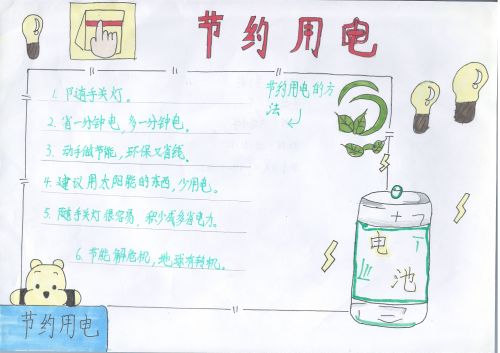 节约用电
节约用电的方
法
1. 随手关灯。
2. 省一分钟电，多一分钟电。
3. 动手做节能，环保又省钱。
4. 建议用太阳能的东西，少用电。
5. 随手关灯很容易，积少成多省电力。
6. 节能解危机，地球有转机。
+ -
电
池
节约用电